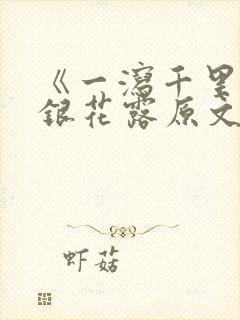 《一瀉千里
銀花露原文
虾菇